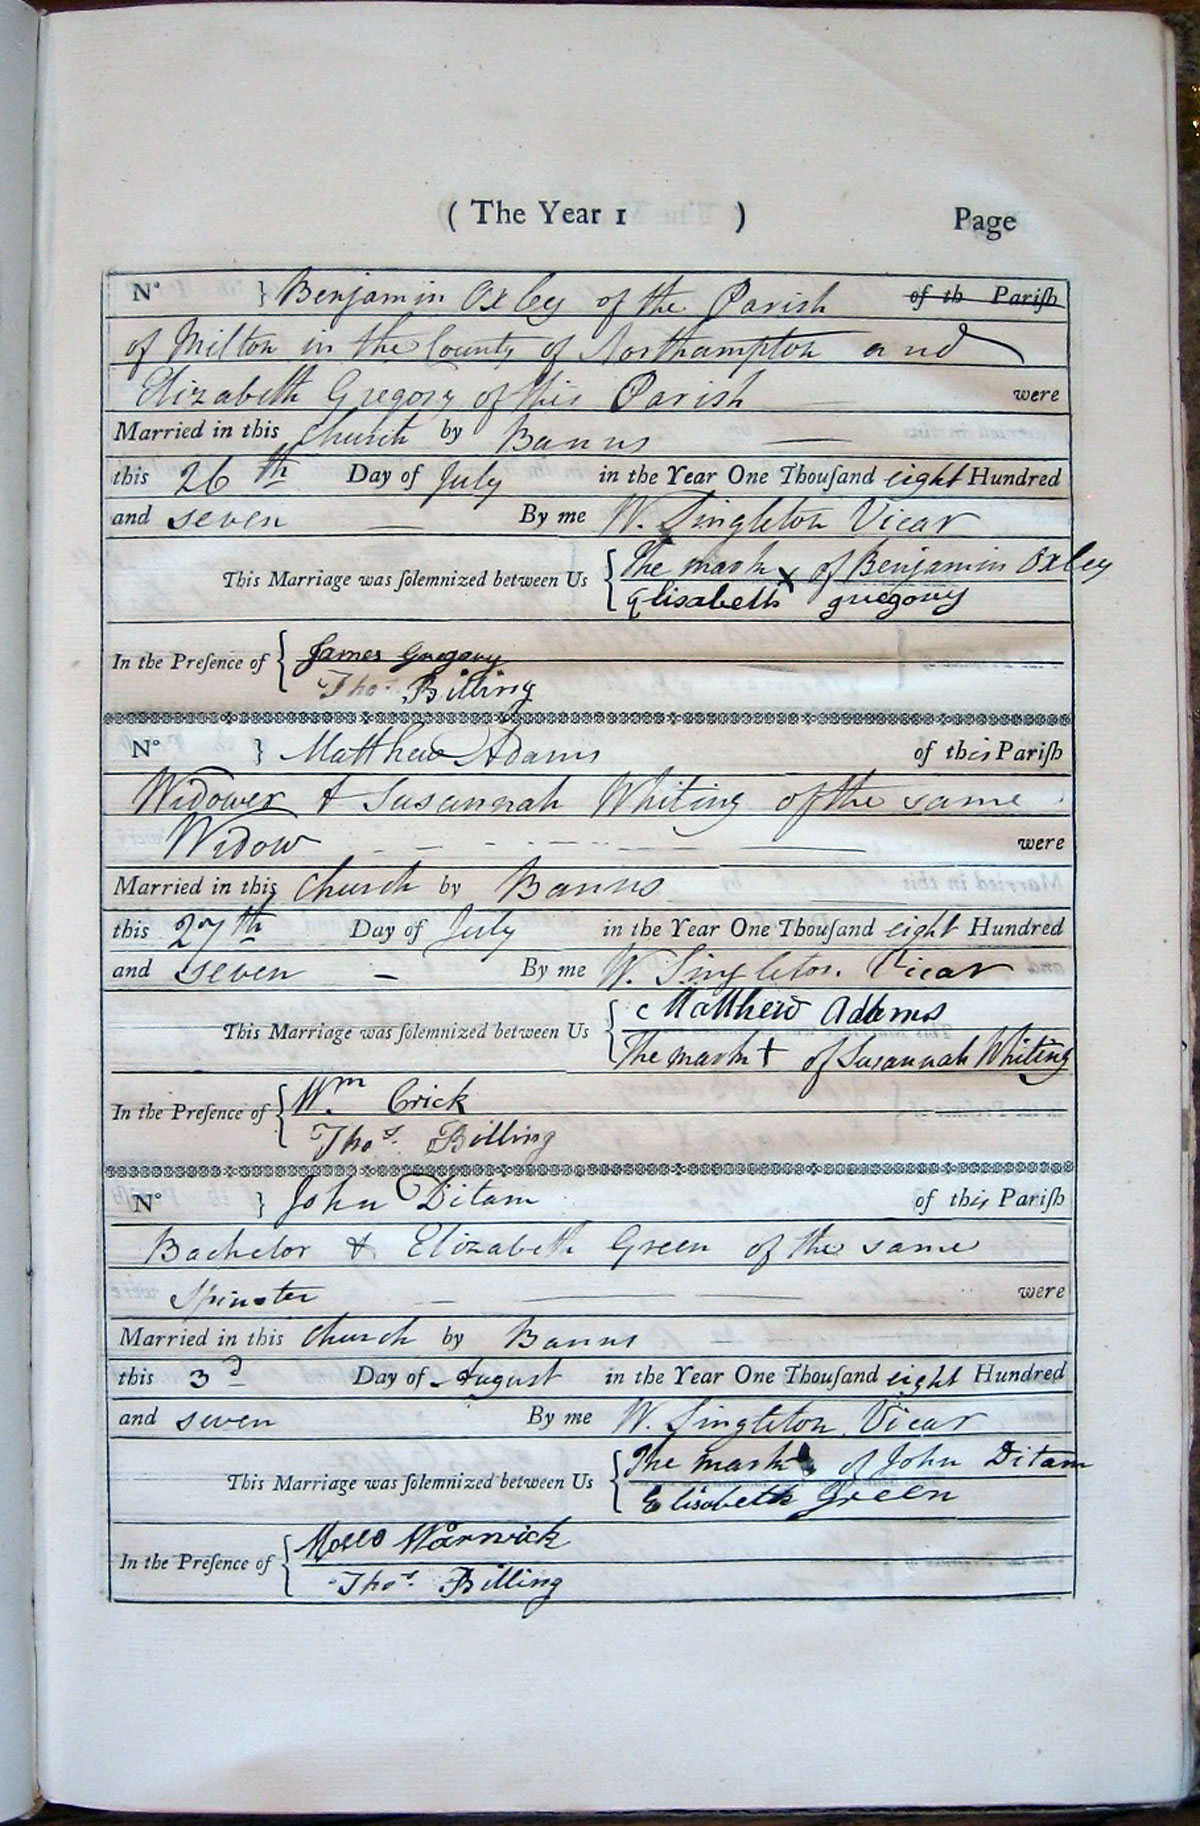 ( The Year 1 ) Page
No } Benjamin Oxley of the Parish of th Pariſh
of Milton in the County of Northampton and
Elizabeth Gregory of this Parish were
Married in this Church by Banns
this 26th Day of July in the Year One Thouſand eight Hundred
and seven By me W. Singleton Vicar
This Marriage was ſolemnized between Us { The mark X of Benjamin Oxley
Elisabeth gregory
In the Preſence of { James Gregory
Thos. Billing
No } Matthew Adams of this Pariſh
Widower & Susannah Whiting of the same
Widow were
Married in this Church by Banns
this 27th Day of July in the Year One Thouſand eight Hundred
and seven By me W. Singleton. Vicar
This Marriage was ſolemnized between Us { Matthew Adams
The mark + of Susannah Whiting
In the Preſence of { Wm Crick
Thos. Billing
No } John Ditam of this Pariſh
Bachelor & Elizabeth Green of the same
Spinster were
Married in this Church by Banns
this 3d Day of August in the Year One Thouſand eight Hundred
and seven By me W. Singleton. Vicar
This Marriage was ſolemnized between Us { The mark of John Ditam
Elisabeth Green
In the Preſence of { Warwick
Thos. Billing